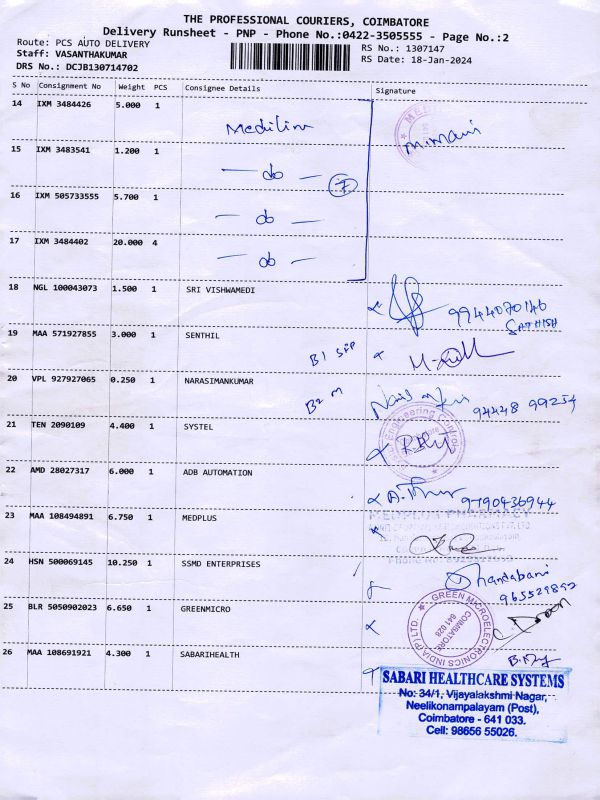 THE PROFESSIONAL COURIERS, COIMBATORE
Delivery Runsheet - PNP - Phone No.:0422-3505555 - Page No.:2
Route: PCS AUTO DELIVERY RS No.: 1307147
Staff: VASANTHAKUMAR RS Date: 18-Jan-2024
DRS No.: DCJB130714702
S No Consignment No Weight PCS Consignee Details Signature
14 IXM 3484426 5.000 1
Mediline M.Mani
15 IXM 3483541 1.200 1
do 7
16 IXM 505733555 5.700 1
do
17 IXM 3484402 20.000 4
do
18 NGL 100043073 1.500 1 SRI VISHWAMEDI
9944070146
SATHISH
19 MAA 571927855 3.000 1 SENTHIL
B1
20 VPL 927927065 0.250 1 NARASIMANKUMAR
B2 M 94448 99254
21 TEN 2090109 4.400 1 SYSTEL
Engineering
22 AMD 28027317 6.000 1 ADB AUTOMATION
9790436944
23 MAA 108494891 6.750 1 MEDPLUS
24 HSN 500069145 10.250 1 SSMD ENTERPRISES
25 BLR 5050902023 6.650 1 GREENMICRO
GREEN MICROELECTRONICS INDIA (P) LTD.
COIMBATORE
641 028
26 MAA 108691921 4.300 1 SABARIHEALTH
SABARI HEALTHCARE SYSTEMS
No: 34/1, Vijayalakshmi Nagar,
Neelikonampalayam (Post),
Coimbatore - 641 033.
Cell: 98656 55026.